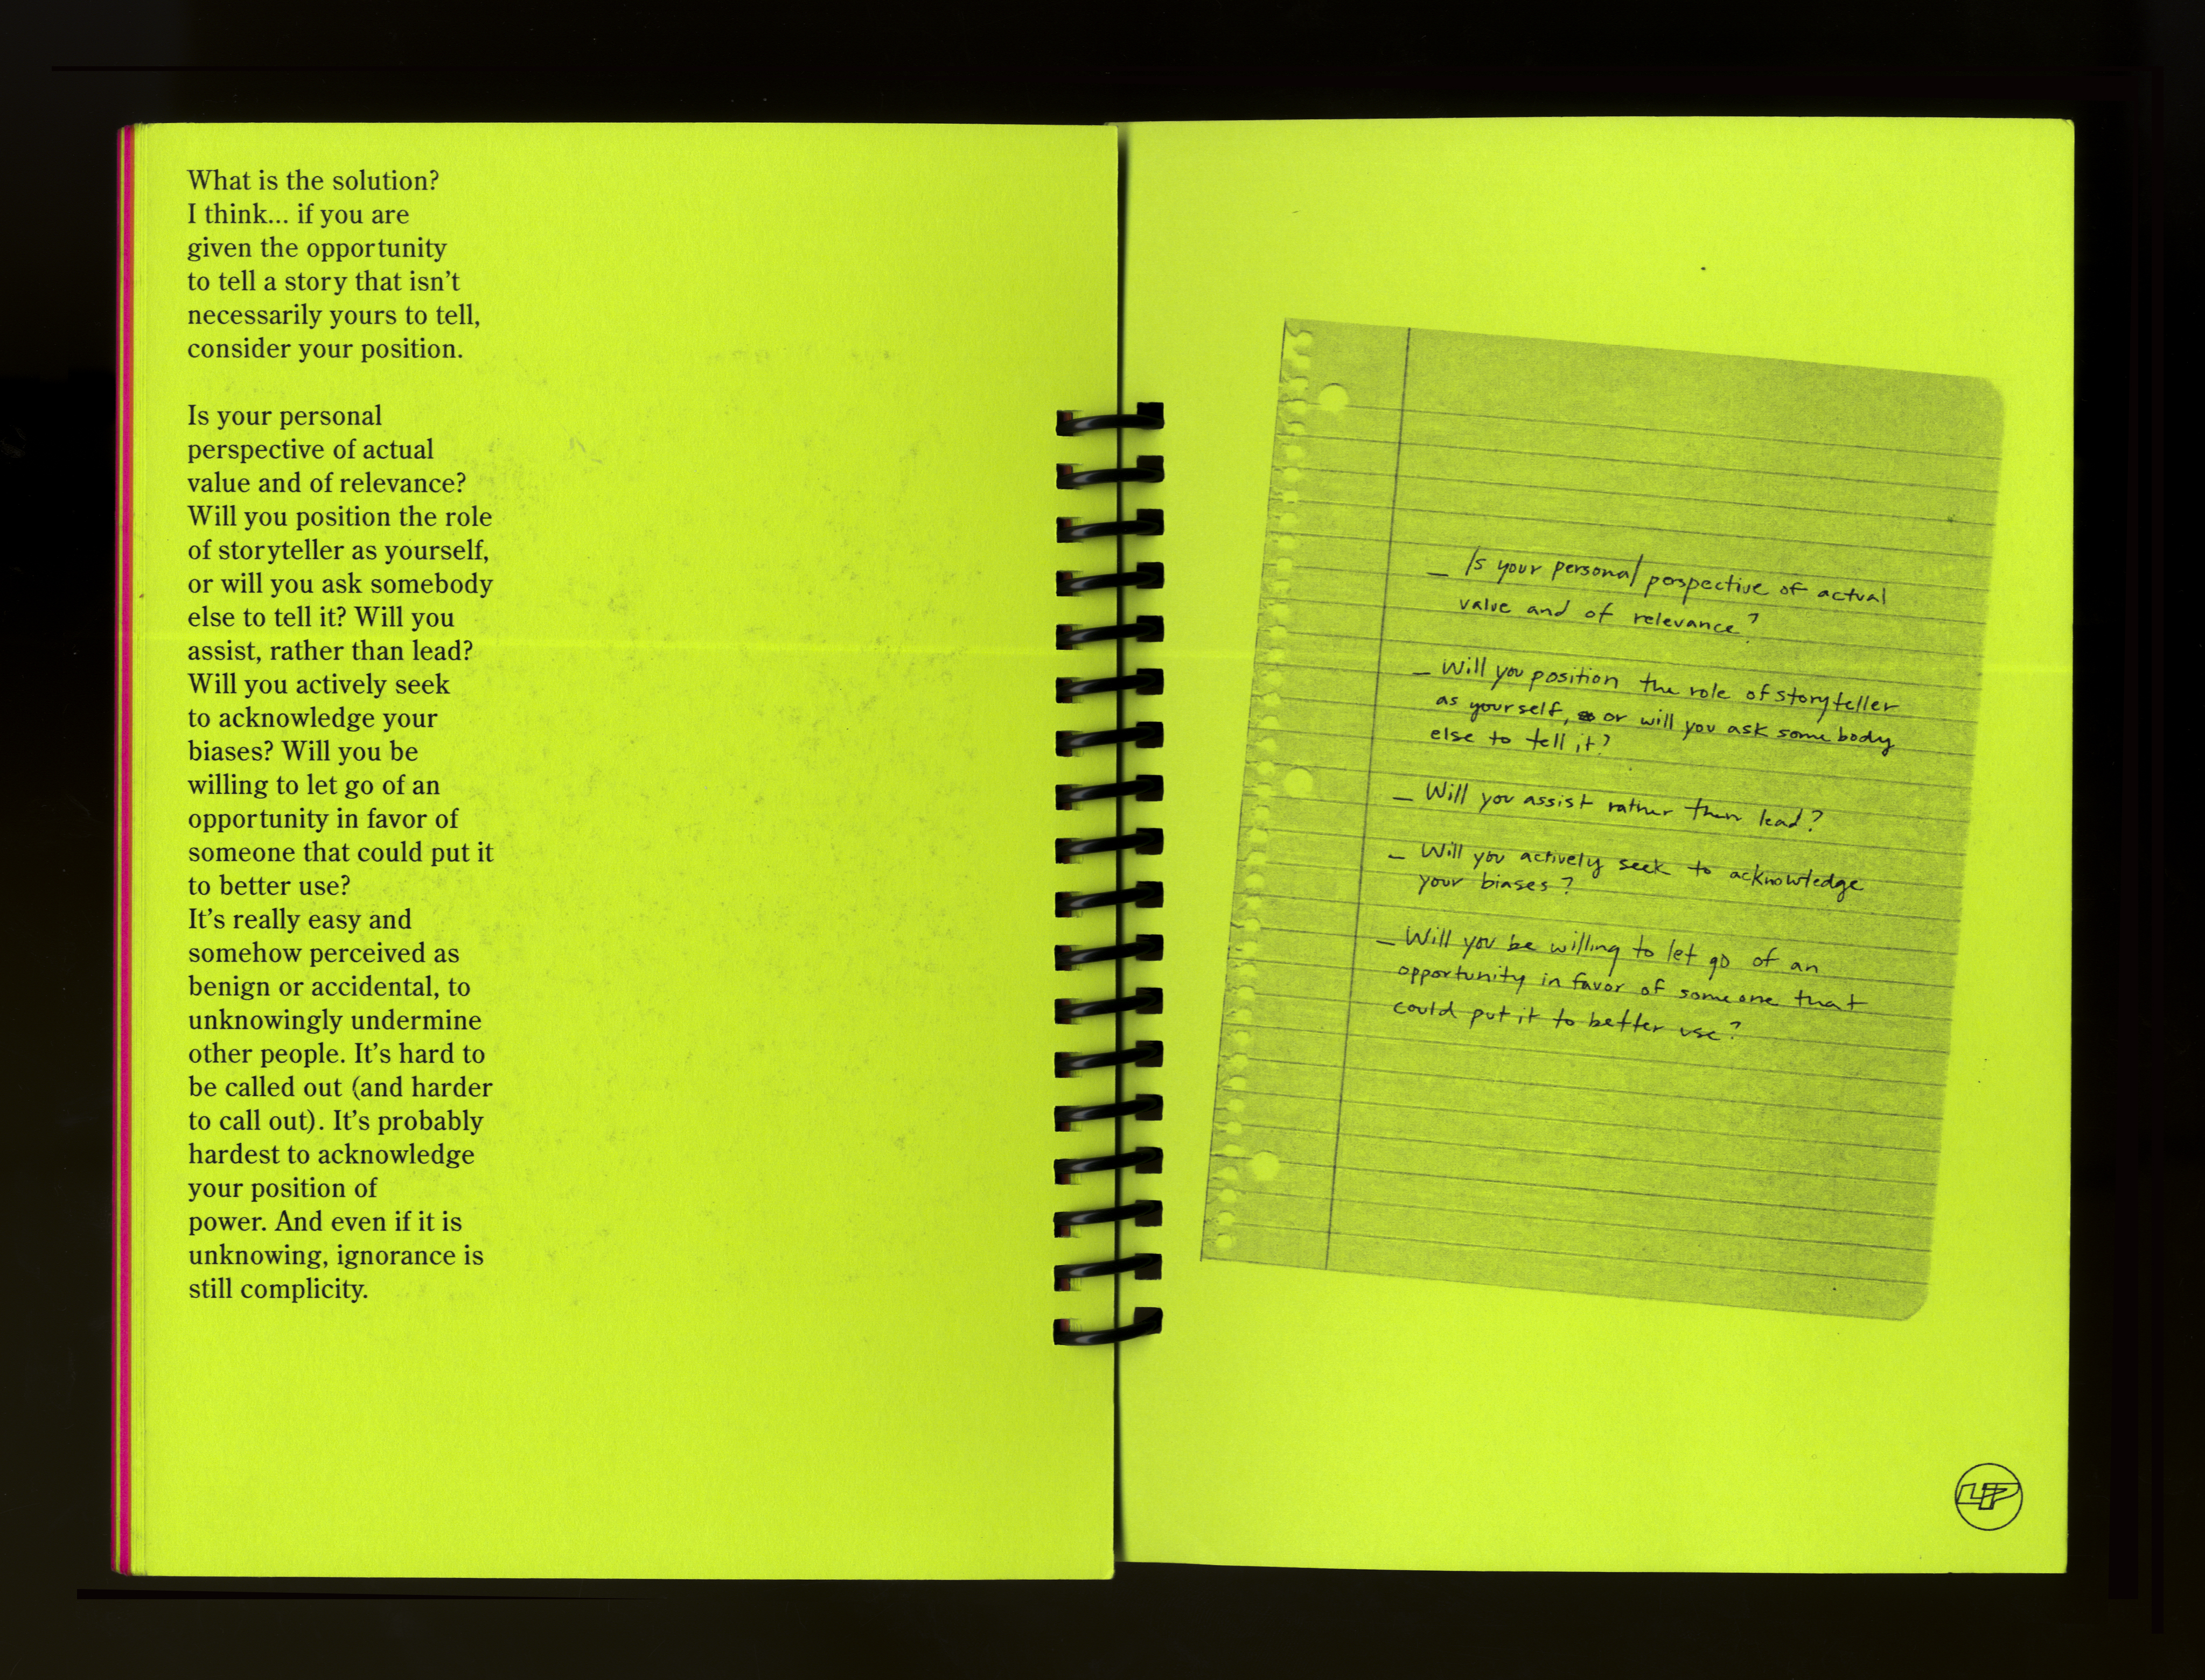 What is the solution?
I think... if you are
given the opportunity
to tell a story that isn't
necessarily yours to tell,
consider your position.
Is your personal
perspective of actual
value and of relevance?
Will you position the role
of storyteller as yourself,
or will you ask somebody
else to tell it? Will you
assist, rather than lead?
Will you actively seek
to acknowledge your
biases? Will you be
willing to let go of an
opportunity in favor of
someone that could put it
to better use?
It's really easy and
somehow perceived as
benign or accidental, to
unknowingly undermine
other people. It's hard to
be called out (and harder
to call out). It's probably
hardest to acknowledge
your position of
power. And even if it is
unknowing, ignorance is
still complicity.
– Is your personal perspective of actual
value and of relevance?
– Will you position the role of storyteller
as yourself, or will you ask somebody
else to tell it?
– Will you assist rather than lead?
– Will you actively seek to acknowledge
your biases?
– Will you be willing to let go of an
opportunity in favor of someone that
could put it to better use?